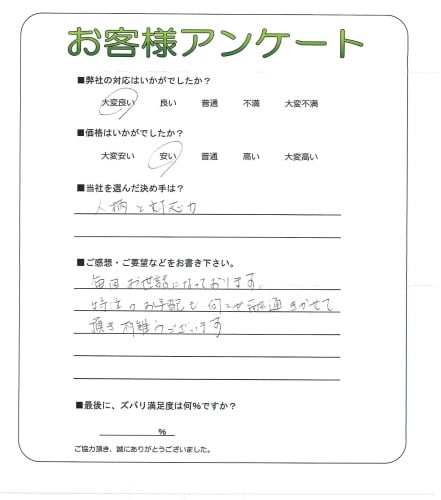 お客様アンケート
■弊社の対応はいかがでしたか?
大変良い 良い 普通 不満 大変不満
■価格はいかがでしたか?
大変安い 安い 普通 高い 大変高い
■当社を選んだ決め手は?
人柄と対応力
■ご感想・ご要望などをお書き下さい。
毎回お世話になっております。
特注のお手配も何とか融通きかせて
頂き有難うございます
■最後に、ズバリ満足度は何%ですか?
%
ご協力頂き、誠にありがとうございました。